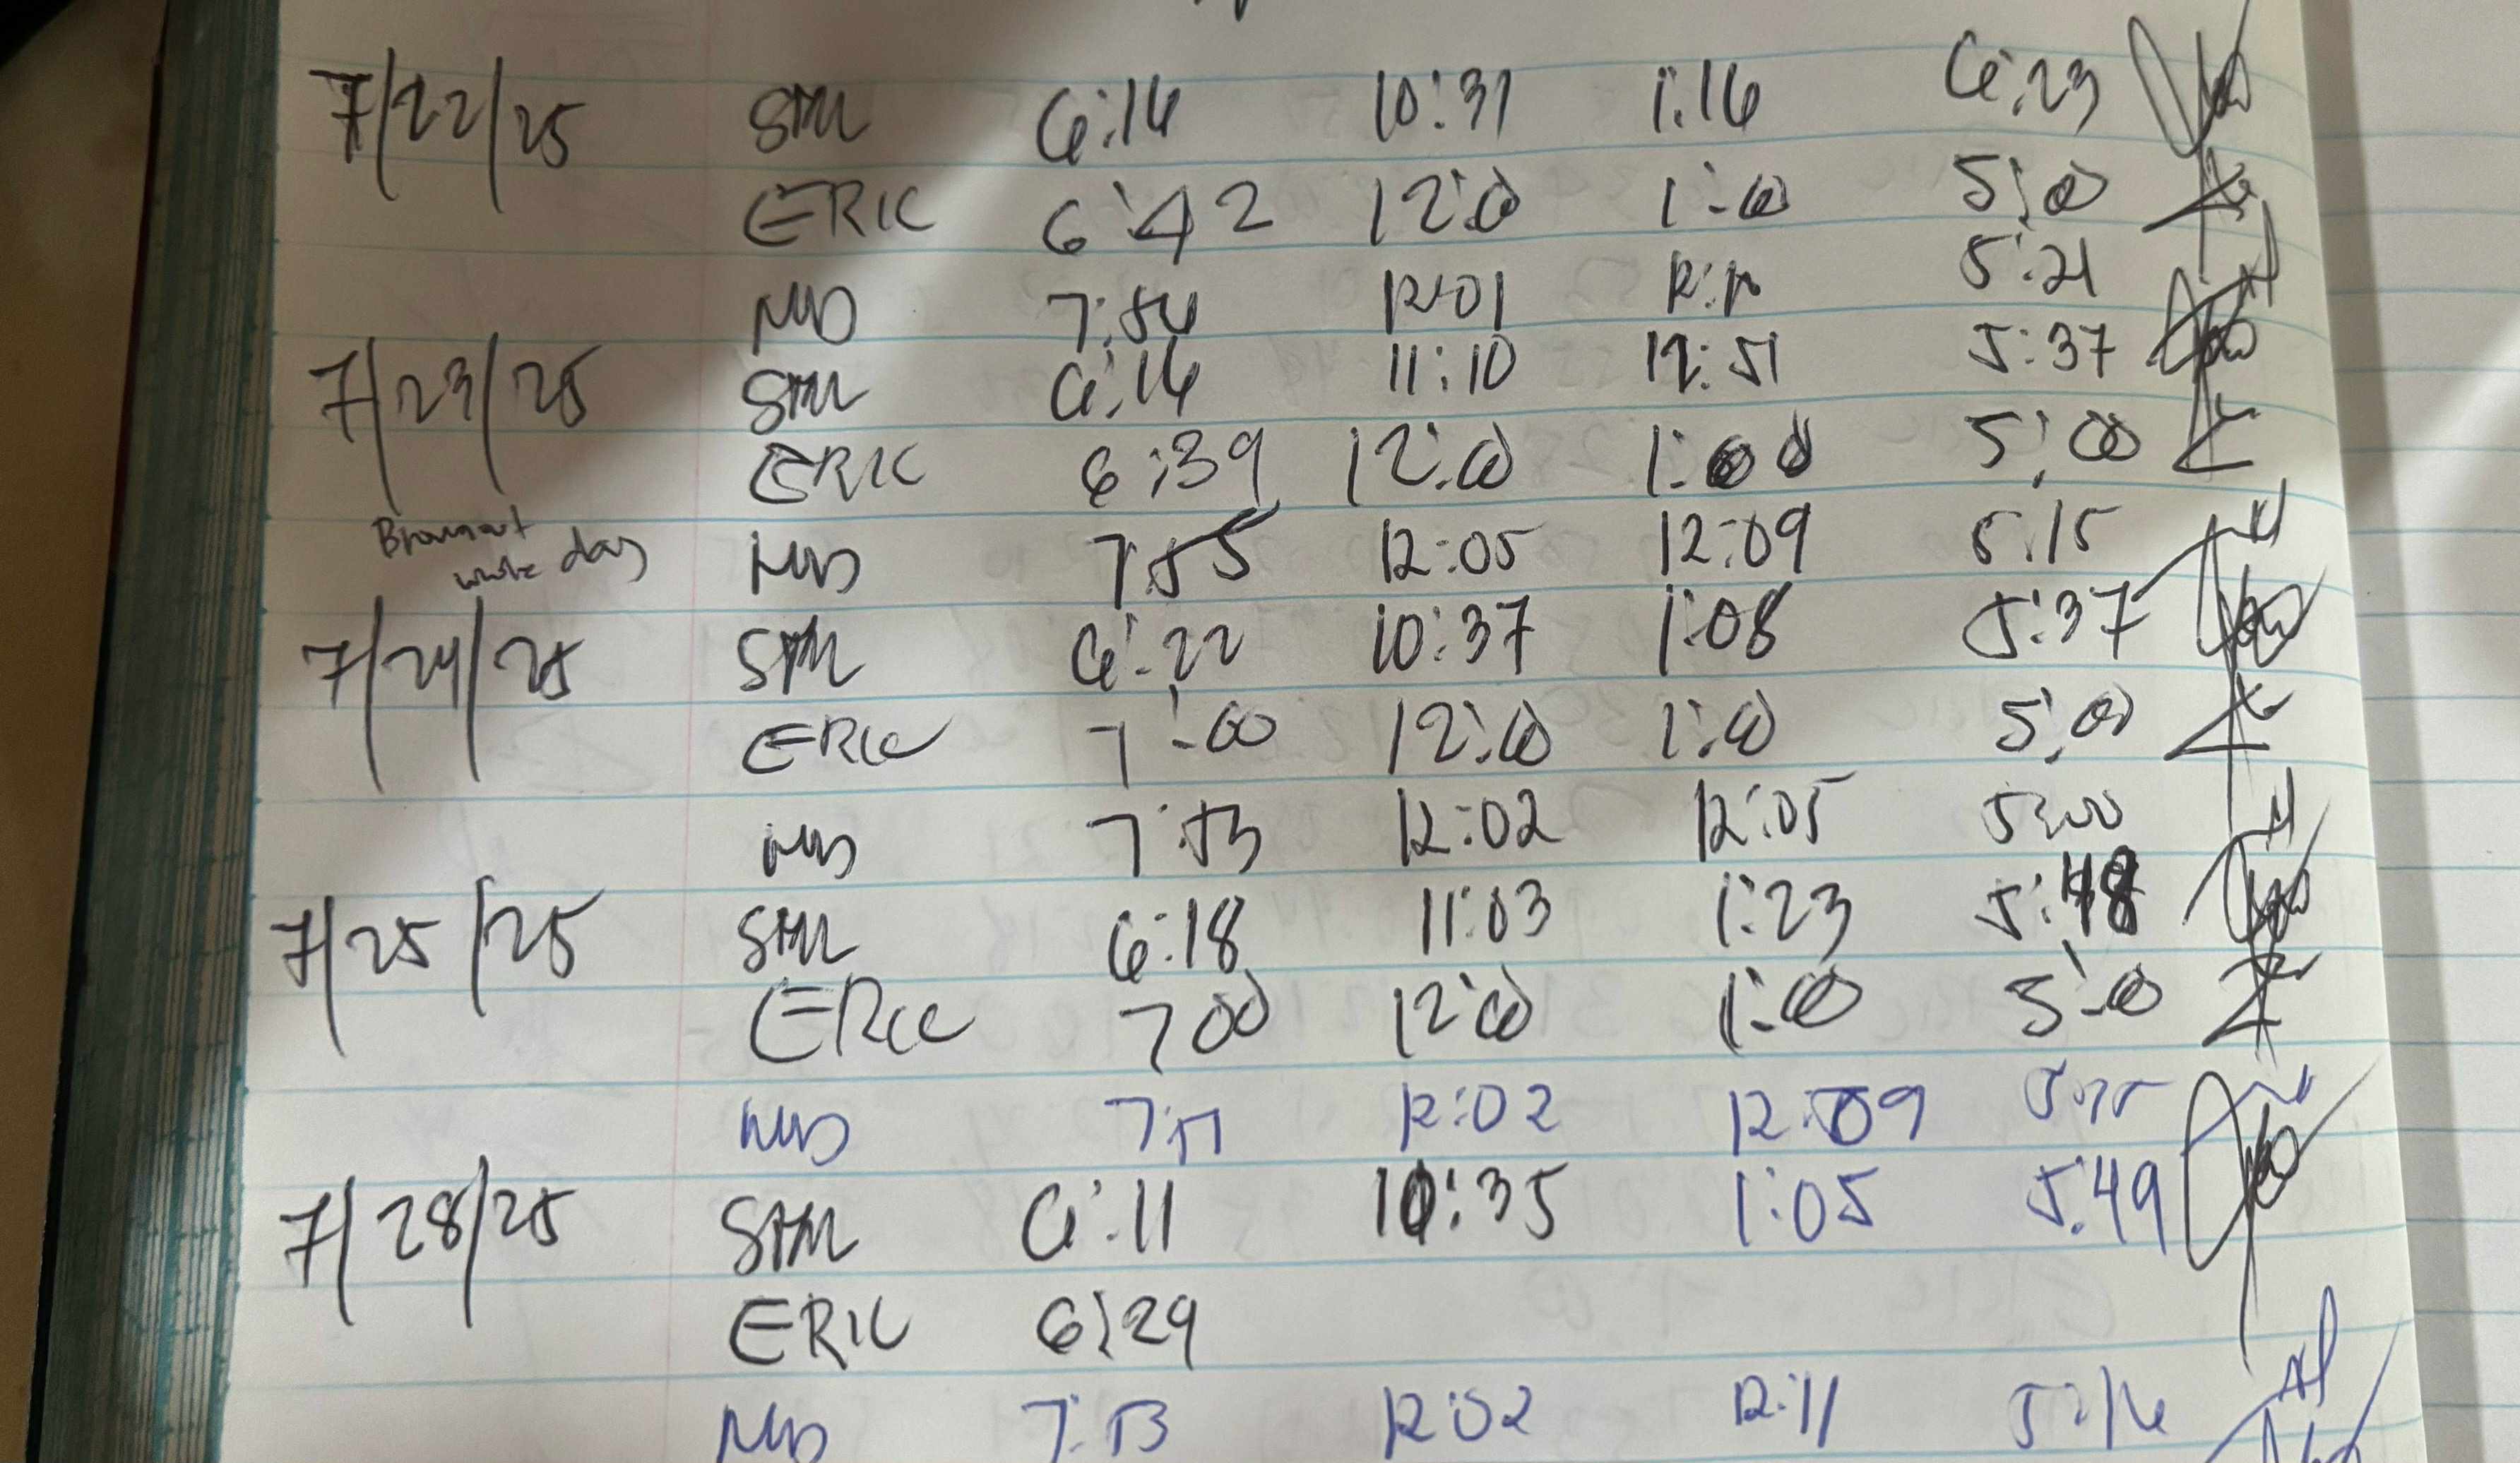 7/22/25 STM 6:16 10:31 1:16 6:23
ERIC 6:42 12:00 1:00 5:00
MB 7:56 12:01 5:21
7/23/25 STM 6:16 11:10 12:51 5:37
ERIC 6:39 12:00 1:00 5:00
Brownout
whole day
MB 7:55 12:05 12:09 5:15
7/24/25 STM 6:22 10:37 1:08 5:37
ERIC 7:00 12:00 1:00 5:00
MB 7:53 12:02 12:05 5:00
7/25/25 STM 6:18 11:03 1:23 5:48
ERIC 700 12:00 1:00 5:00
MB 12:02 12:09
7/28/25 STM 6:11 10:35 1:05 5:49
ERIC 6:29
MB 7:53 12:02 12:11 5:16